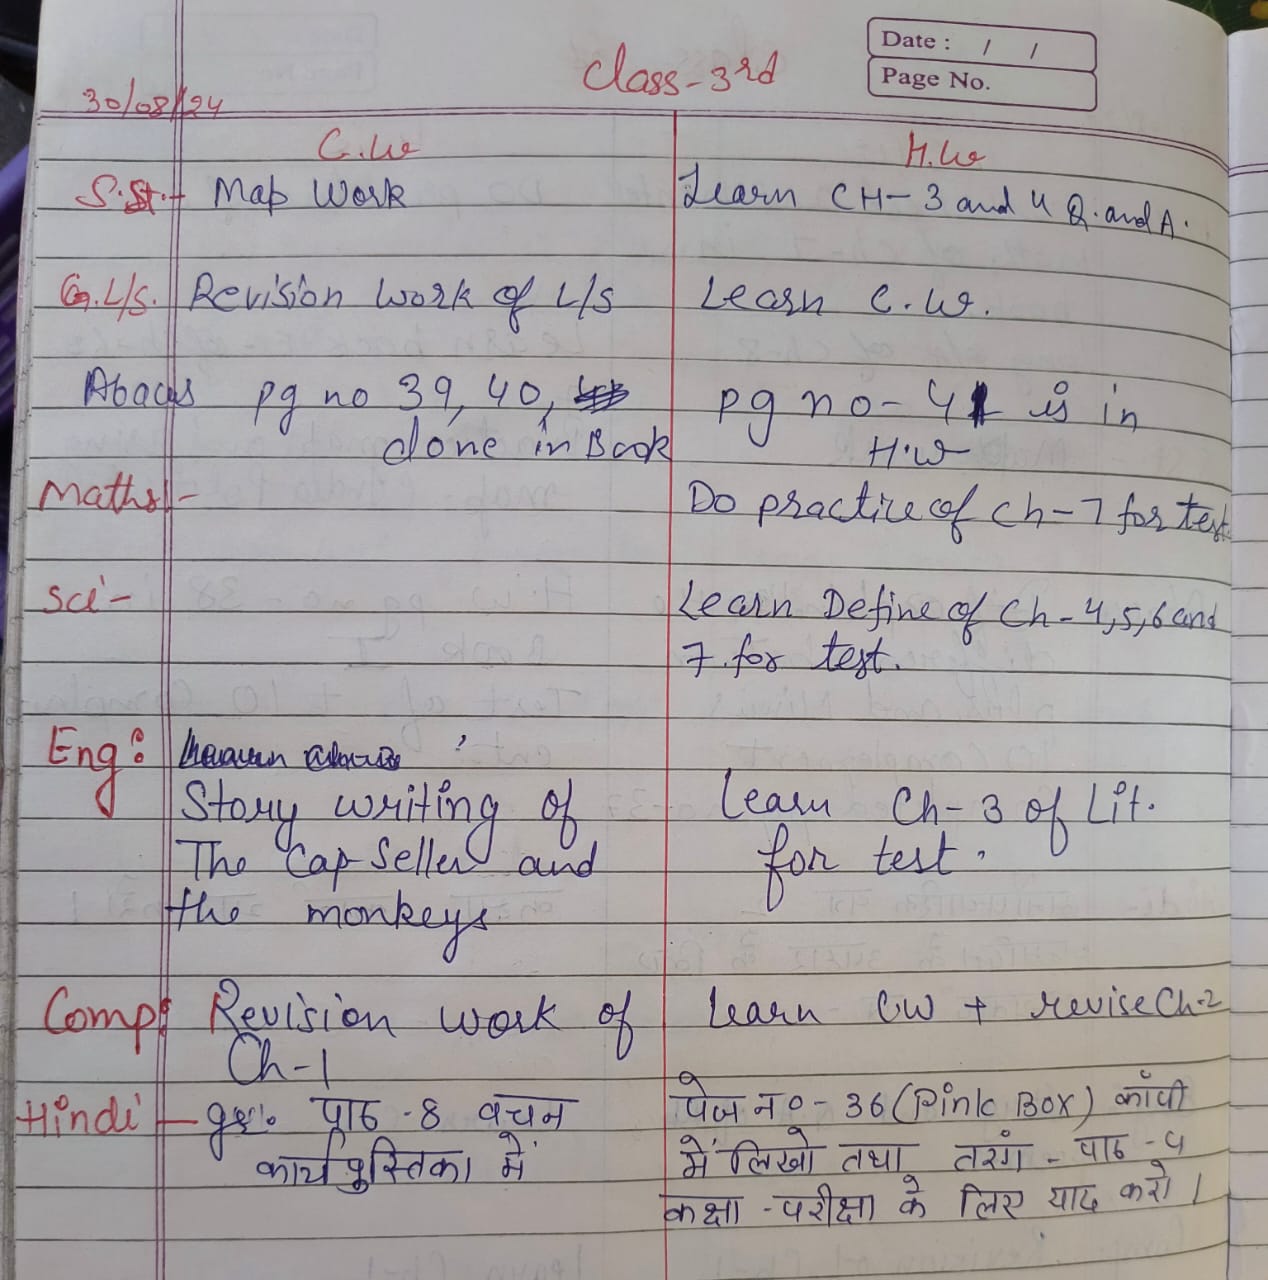 Date : / /
Page No.
Class-3rd
30/08/24
C.W
H.W
S.St.:- Map Work
Learn CH-3 and 4 Q.and A.
G.L/S. Revision work of L/S
Learn C.W.
Abacus pg no 39, 40,
done in Book
pg no- 41 is in
H.W
Maths:-
Do practice of ch-7 for test.
Sci-
Learn Define of Ch-4,5,6 and
7 for test.
Eng:
Story writing of
The Cap Seller and
the monkeys
Learn Ch-3 of Lit.
for test.
Comp: Revision work of
Ch-1
Learn CW + revise Ch-2
Hindi - पाठ-8 वचन
कार्य पुस्तिका में
पेज न०-36 (Pink Box) कॉपी
में लिखो तथा तरंग - पाठ-५
कक्षा-परीक्षा के लिए याद करो।